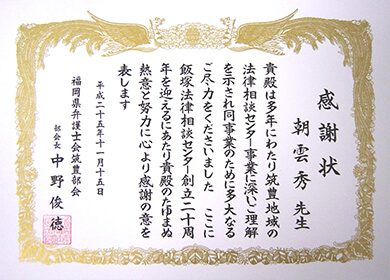 感謝状
朝雲秀先生
貴殿は多年にわたり筑豊地域の
法律相談センター事業に深いご理解
を示され同事業のために多大なる
ご尽力をくださいました　ここに
飯塚法律相談センター創立二十周
年を迎えるにあたり貴殿のたゆまぬ
熱意と努力に心より感謝の意を
表します
平成二十五年十一月十五日
福岡県弁護士会筑豊部会
部会長　中野俊徳